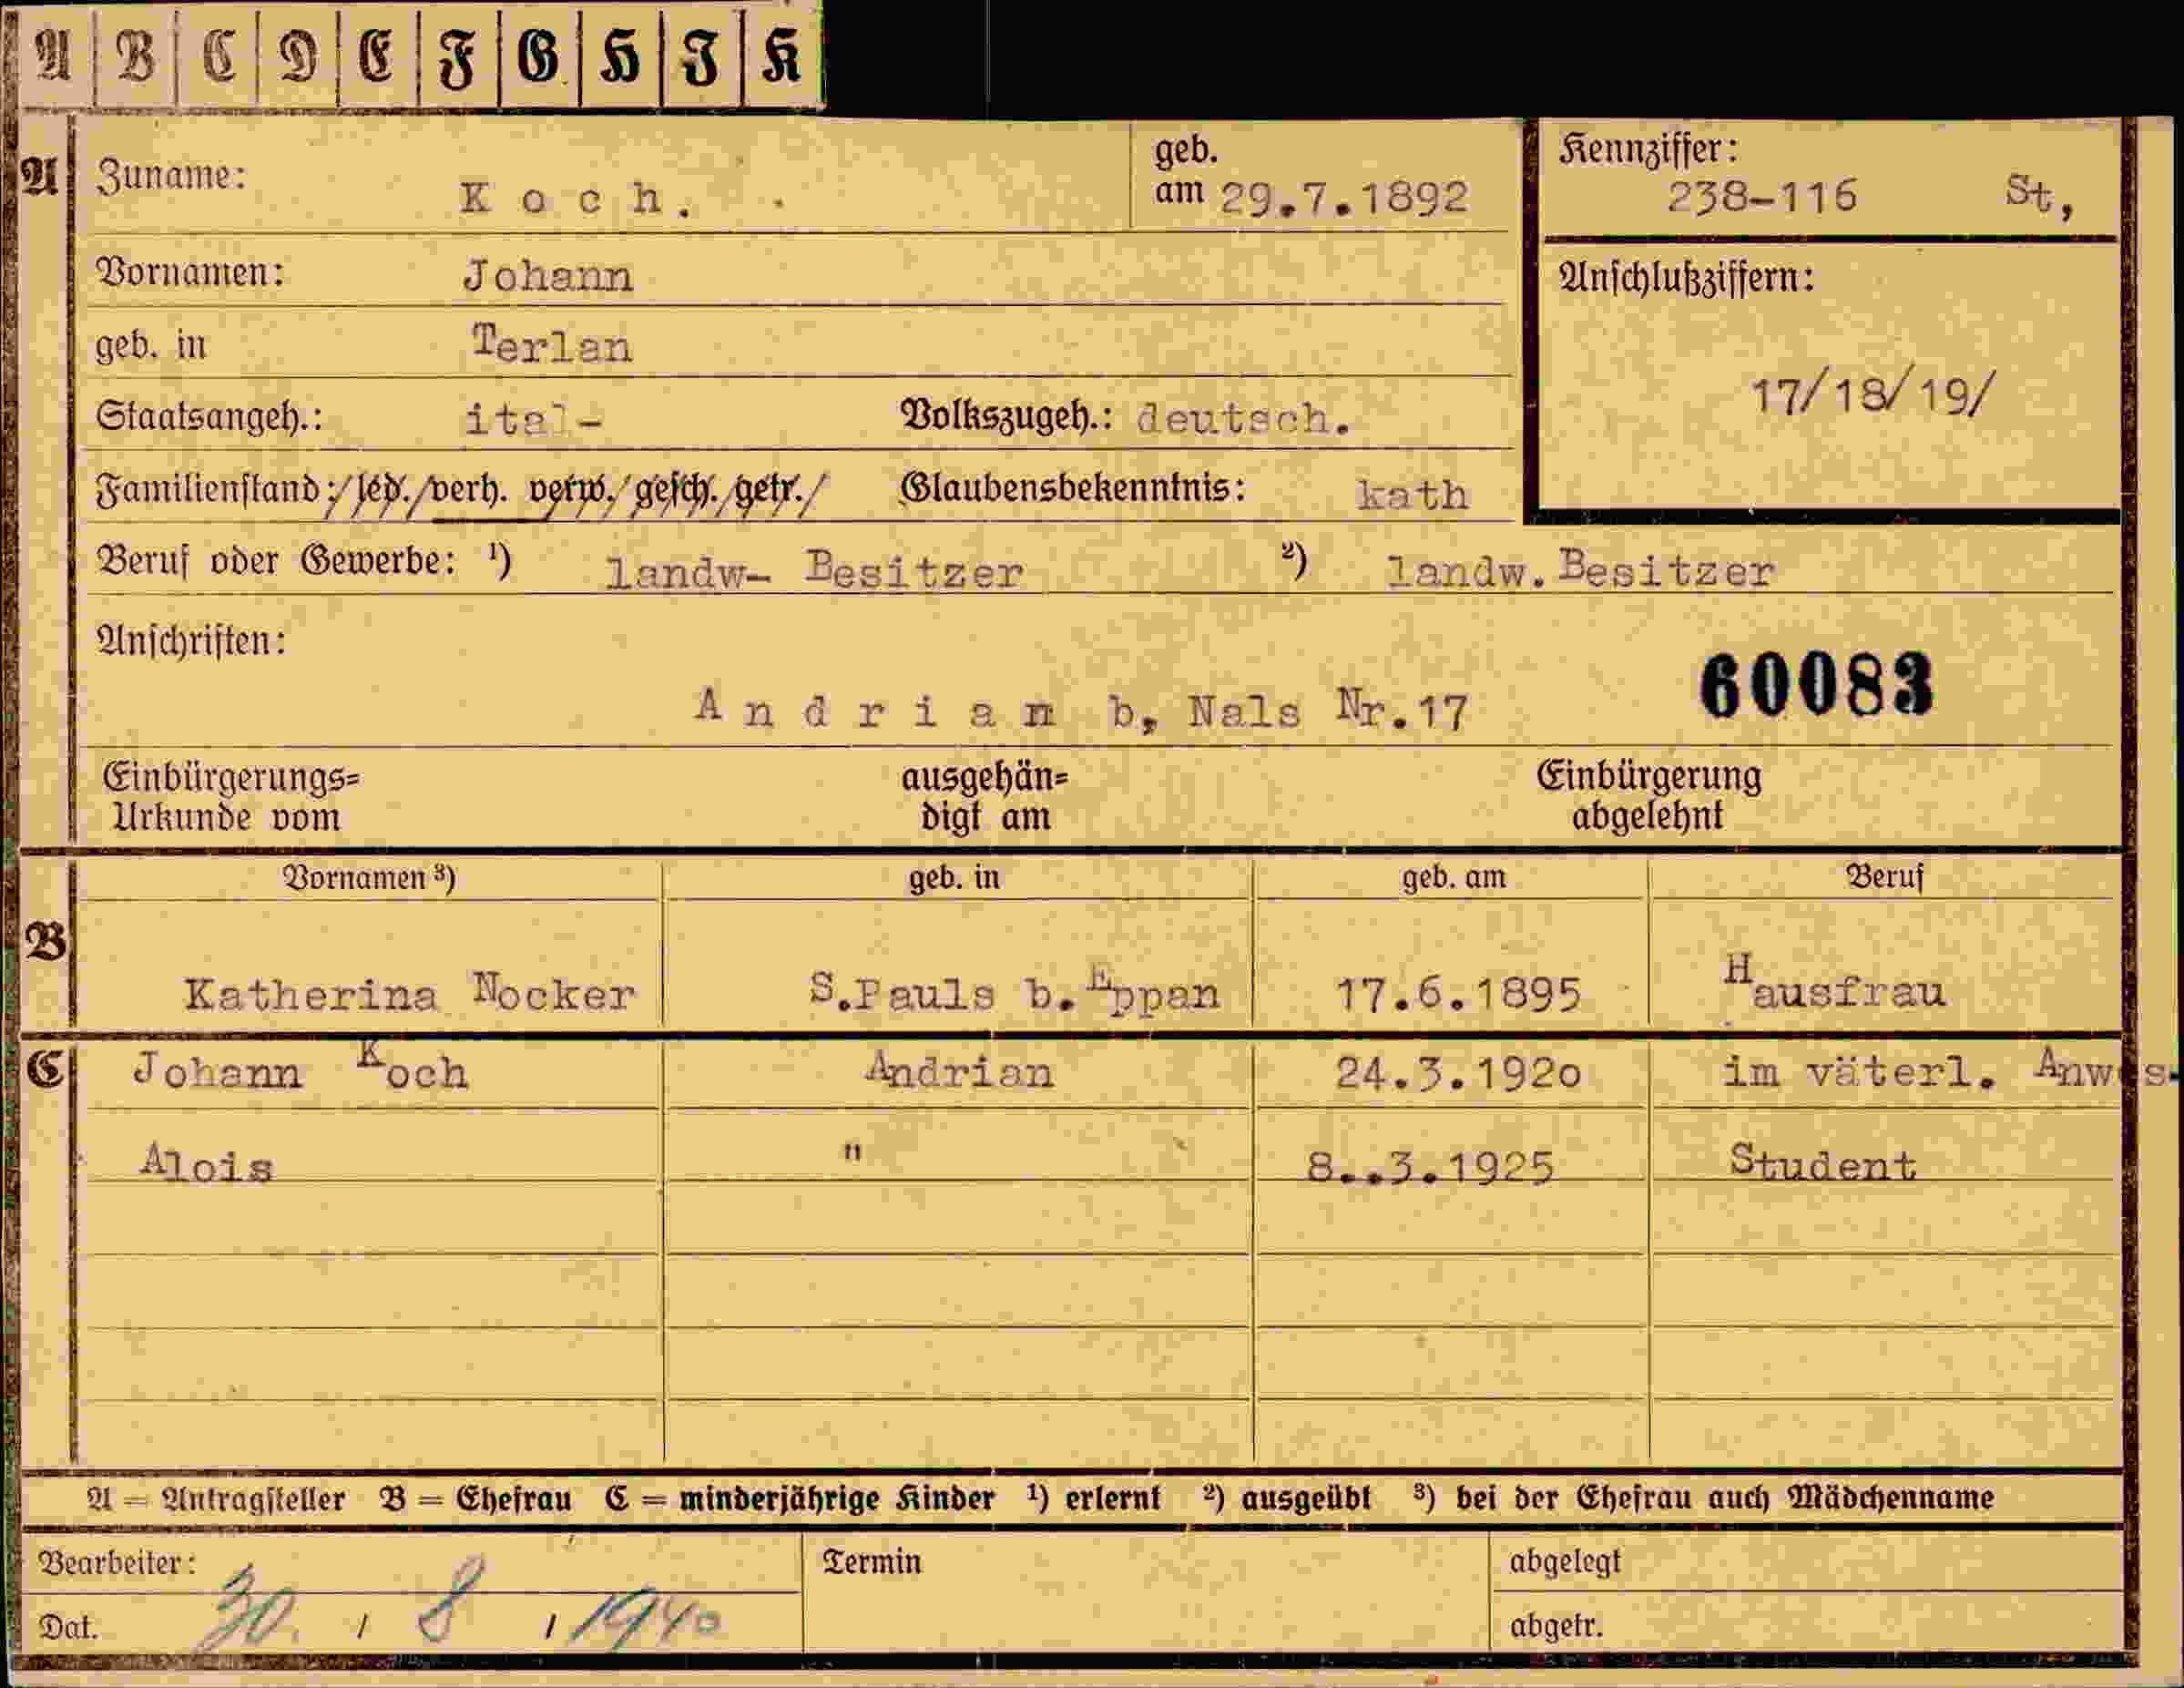 A B C D E F G H I K
A Zuname: Koch. geb. am 29.7.1892 Kennziffer: 238-116 St,
Vornamen: Johann Anschlußziffern:
geb. in Terlan 17/18/19/
Staatsangeh.: ital- Volkszugeh.: deutsch.
Familienstand: led. verh. verw. gesch. getr. Glaubensbekenntnis: kath
Beruf oder Gewerbe: ¹) landw- Besitzer ²) landw. Besitzer
Anschriften:
Andrian b, Nals Nr.17 60083
Einbürgerungs= ausgehän= Einbürgerung
Urkunde vom digt am abgelehnt
Vornamen ³) geb. in geb. am Beruf
B Katherina Nocker S.Pauls b. Eppan 17.6.1895 Hausfrau
C Johann Koch Andrian 24.3.1920 im väterl. Anwes.
Alois " 8..3.1925 Student
A = Antragsteller B = Ehefrau C = minderjährige Kinder ¹) erlernt ²) ausgeübt ³) bei der Ehefrau auch Mädchenname
Bearbeiter: Termin abgelegt
Dat. 30. / 8 / 1940 abgetr.